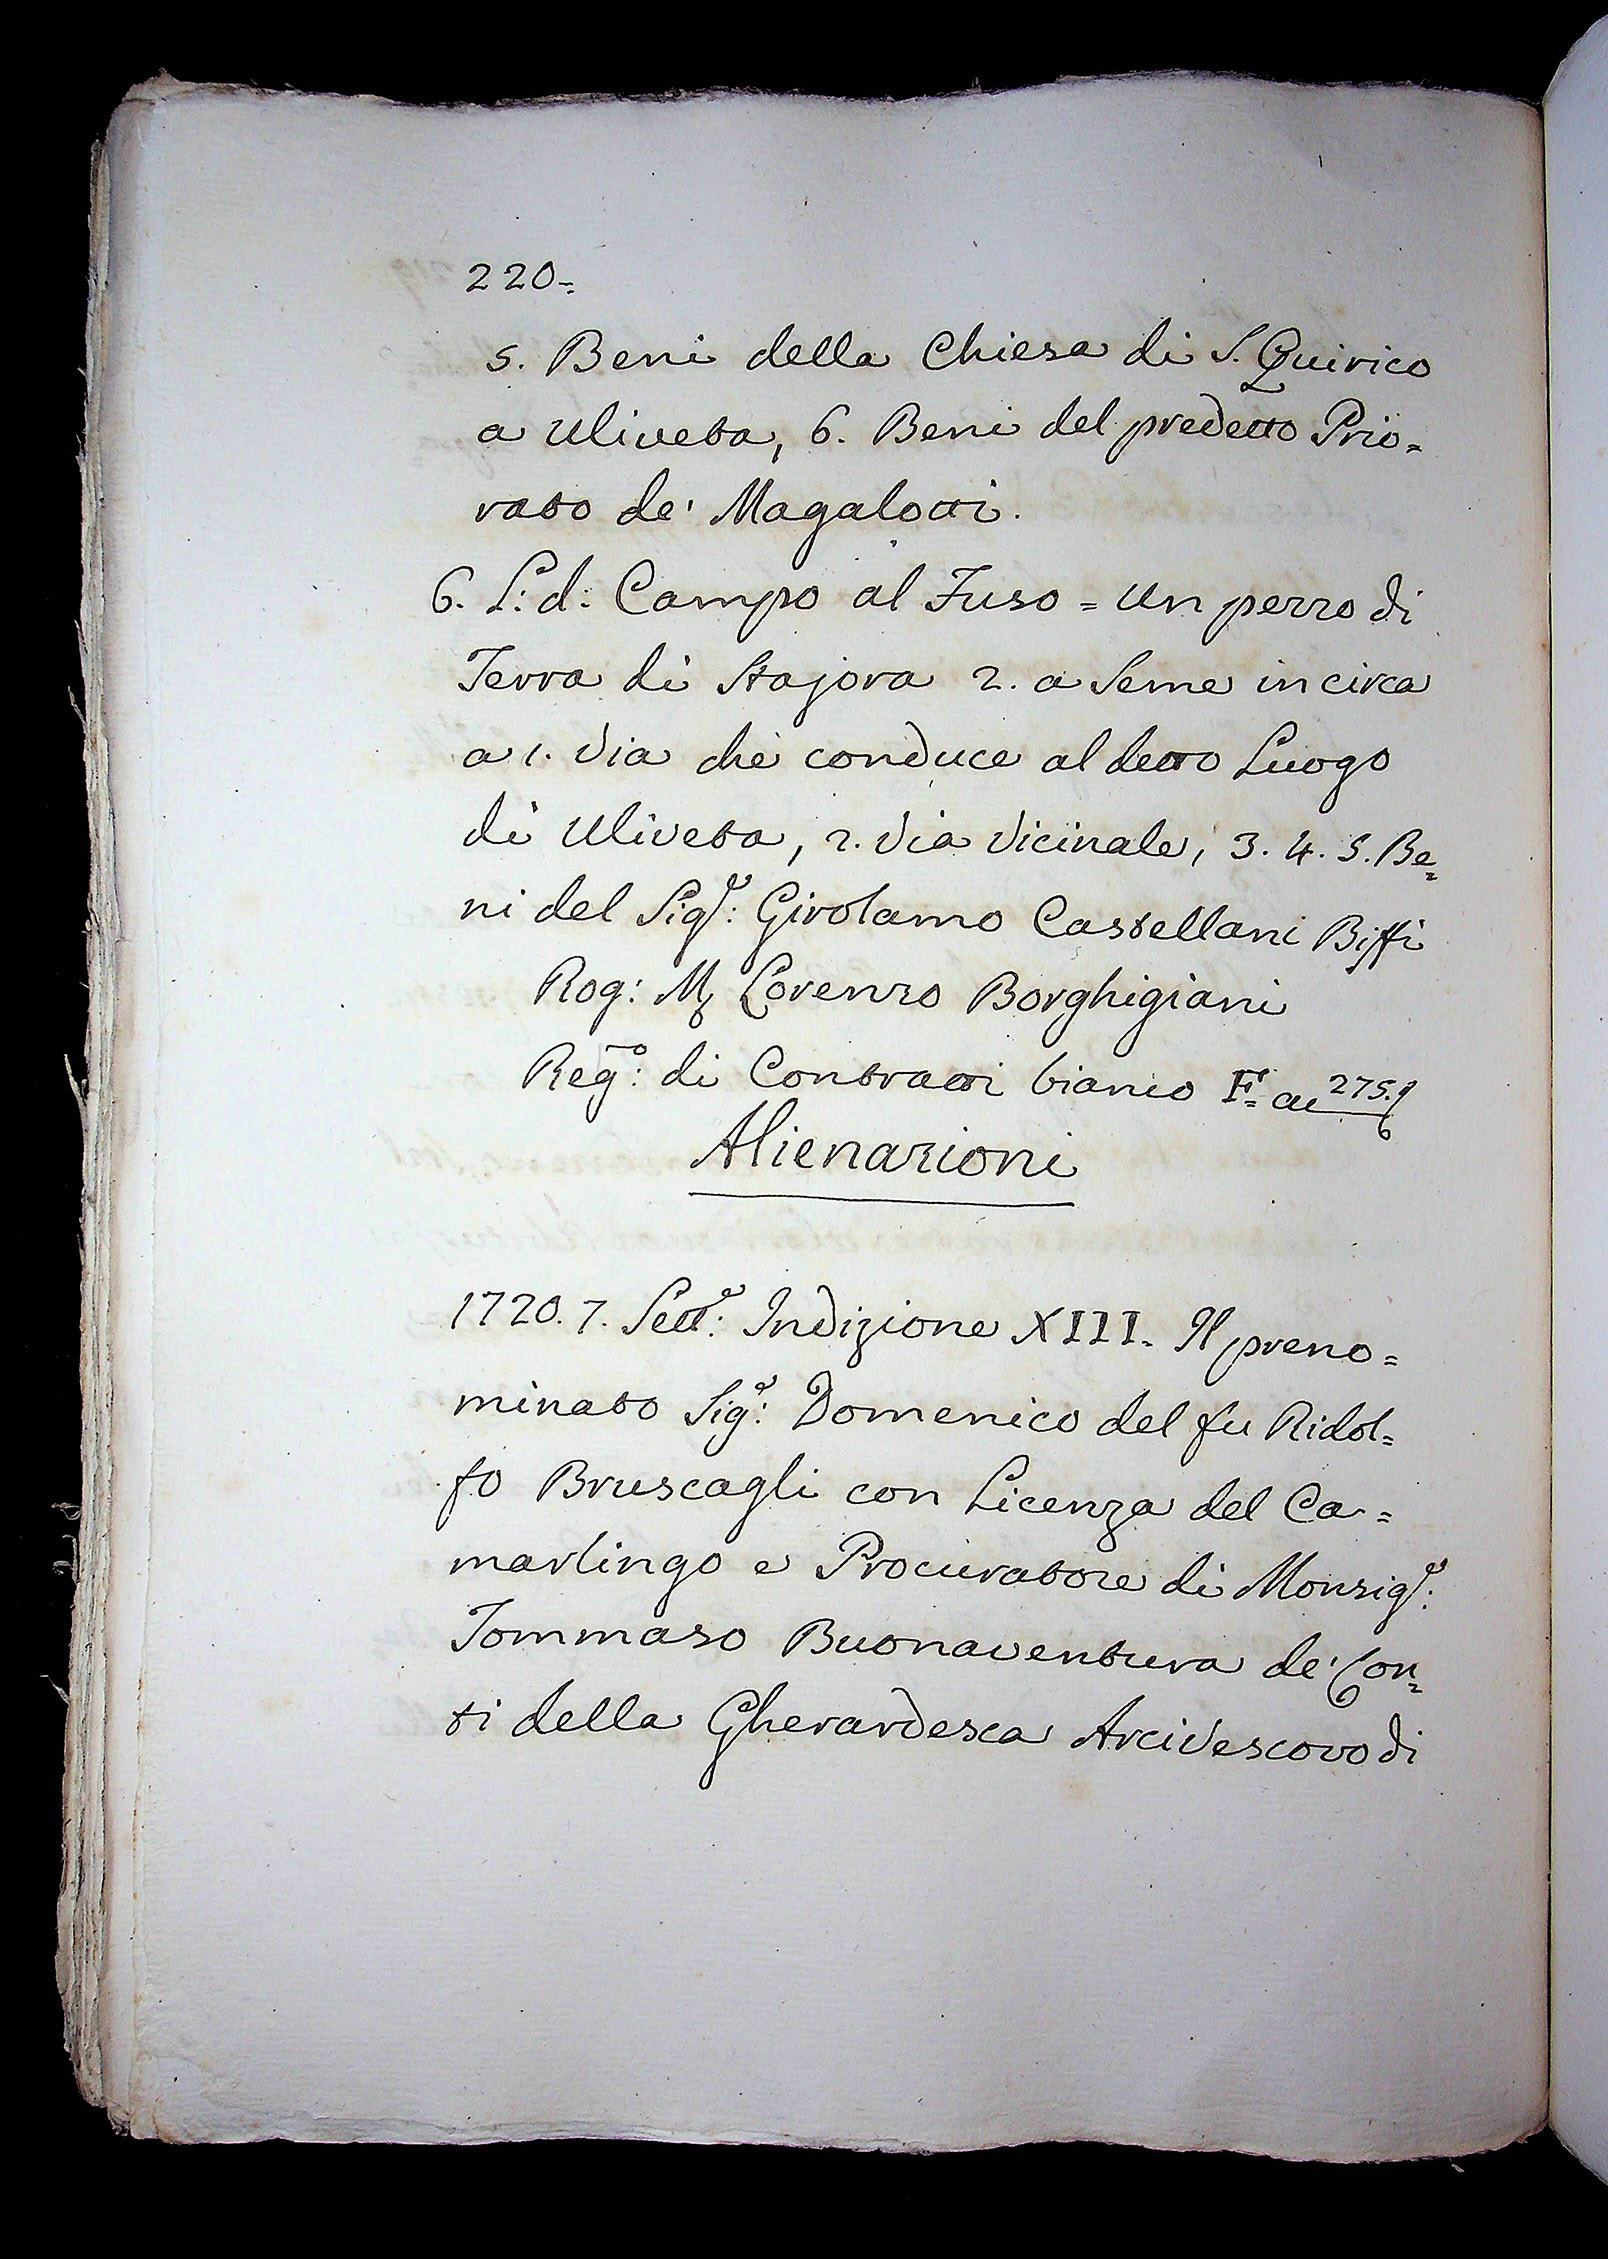 220=
5. Beni della Chiesa di S. Quirico
a Uliveta, 6. Beni del predetto Prio=
rato de' Magalotti.
6. L: d: Campo al Fuso = Un pezzo di
Terra di Stajora 2. a Seme in circa
a 1. Via che conduce al detto Luogo
di Uliveta, 2. Via Vicinale, 3. 4. 5. Be=
ni del Sig.e: Girolamo Castellani Biffi
Rog: M Lorenzo Borghigiani
Reg.o: di Contratti bianco F. ac 275.
Alienazioni
1720. 7. Sett.e: Indizione XIII. Il preno=
minato Sig.e: Domenico del fu Ridol=
fo Bruscagli con Licenza del Ca=
marlingo e Procuratore di Monsig.e:
Tommaso Buonaventura de' Con=
ti della Gherardesca Arcivescovo di